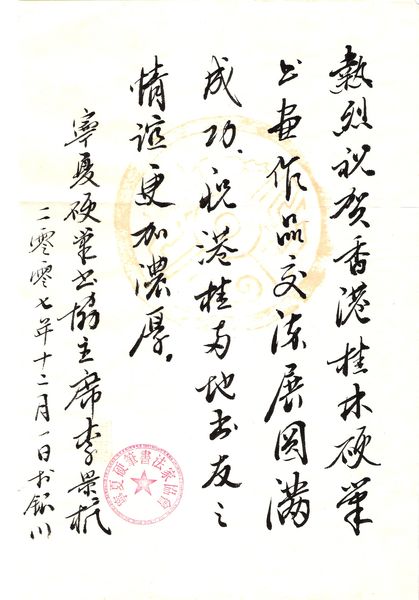 熱烈祝贺香港桂林硬筆
书画作品交流展圆满
成功.祝港桂两地书友之
情谊更加濃厚。
寧夏硬筆书協主席李景杭
二零零七年十二月一日于银川
寧夏硬筆書法家協會